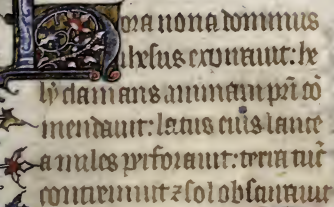 Hora nona dominus
ihesus expirauit: he
ly clamans animam pri co
mendauit: latus eius lance
a miles perforauit: terra tūc
contremuit ⁊ sol obscurauit